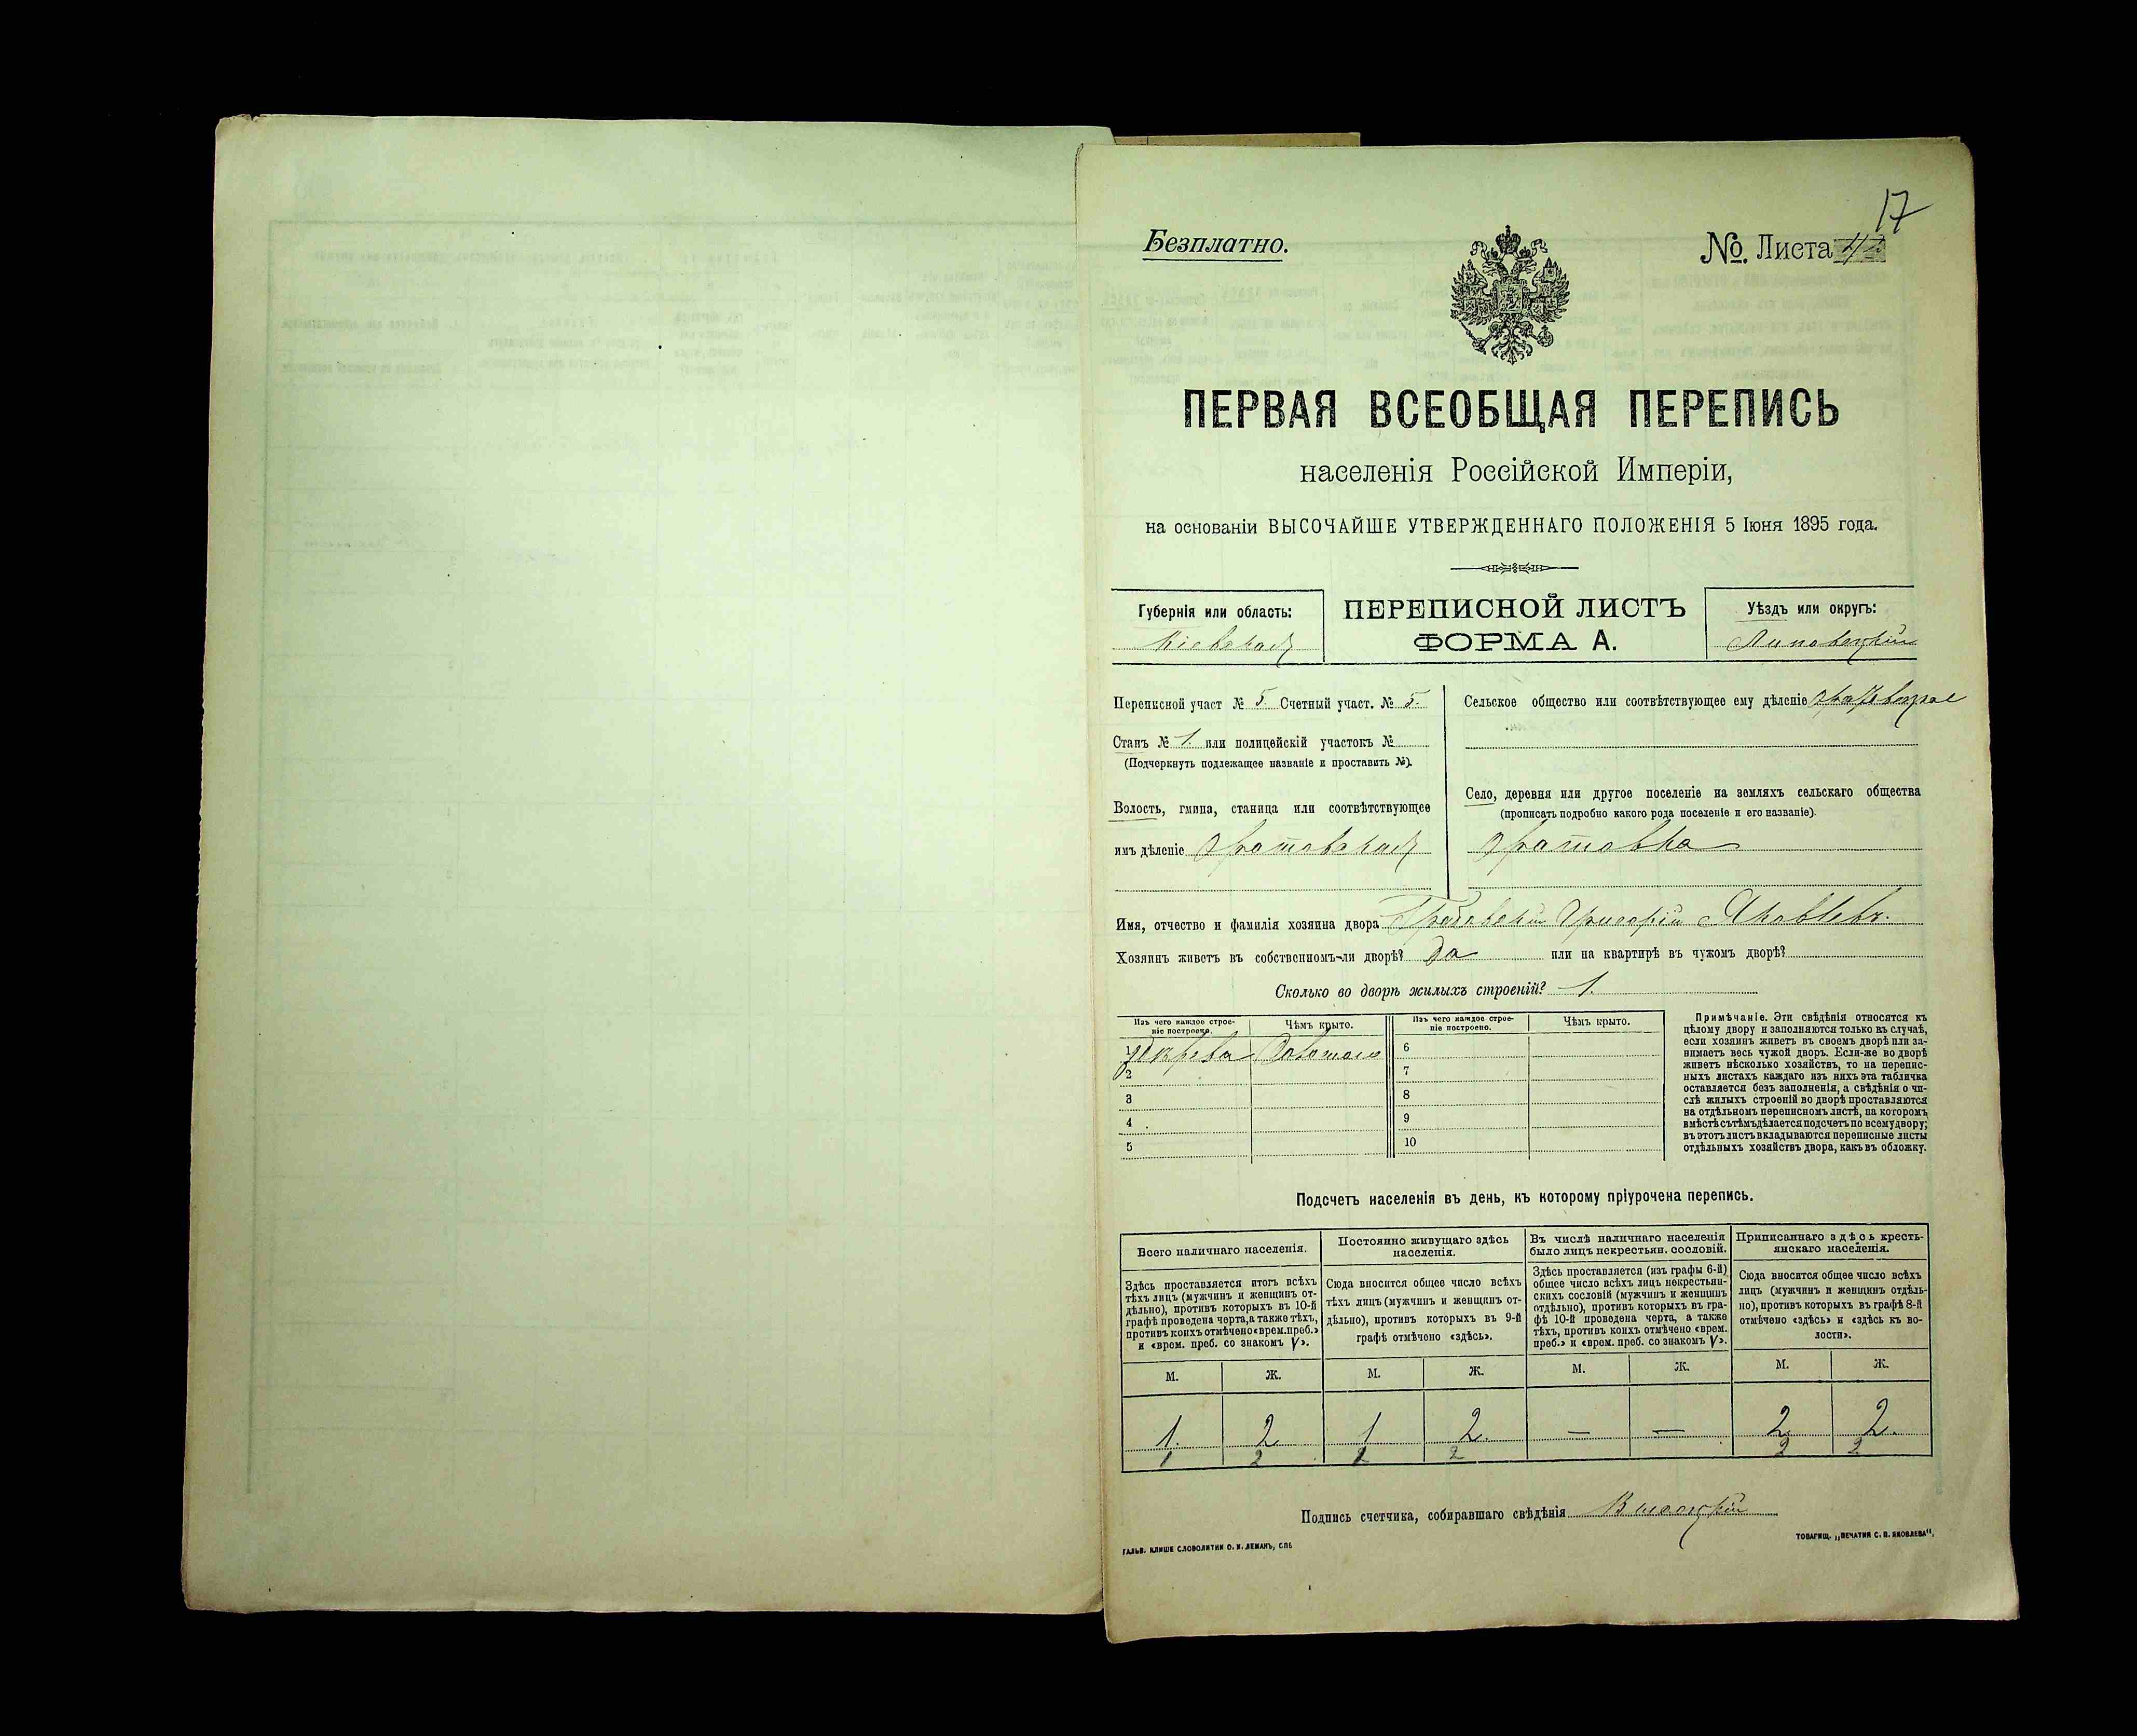 17
Безплатно.
№. Листа
ПЕРВАЯ ВСЕОБЩАЯ ПЕРЕПИСЬ
населенія Россійской Имперіи,
на основаніи ВЫСОЧАЙШЕ УТВЕРЖДЕННАГО ПОЛОЖЕНІЯ 5 Іюня 1895 года.
Губернія или область:
Кіевская
ПЕРЕПИСНОЙ ЛИСТЪ
ФОРМА А.
Уѣздъ или округъ:
Липовецкій
Переписной участ № 5. Счетный участ. № 5.
Станъ № 1. или полицейскій участокъ №
(Подчеркнуть подлежащее названіе и проставить №).
Волость, гмина, станица или соотвѣтствующее
имъ дѣленіе
Сельское общество или соотвѣтствующее ему дѣленіе
Село, деревня или другое поселеніе на земляхъ сельскаго общества
(прописать подробно какого рода поселеніе и его названіе).
Имя, отчество и фамилія хозяина двора Григорій Яковлевъ.
Хозяинъ живетъ въ собственномъ-ли дворѣ? Да или на квартирѣ въ чужомъ дворѣ?
Сколько во дворѣ жилыхъ строеній? 1.
Изъ чего каждое строе-
ніе построено.
Чѣмъ крыто.
Изъ чего каждое строе-
ніе построено.
Чѣмъ крыто.
1
2
3
4
5
6
7
8
9
10
Примѣчаніе. Эти свѣдѣнія относятся къ
цѣлому двору и заполняются только въ случаѣ,
если хозяинъ живетъ въ своемъ дворѣ или за-
нимаетъ весь чужой дворъ. Если-же во дворѣ
живетъ нѣсколько хозяйствъ, то на перепис-
ныхъ листахъ каждаго изъ нихъ эта табличка
оставляется безъ заполненія, а свѣдѣнія о чи-
слѣ жилыхъ строеній во дворѣ проставляются
на отдѣльномъ переписномъ листѣ, на которомъ
вмѣстѣ съ тѣмъ дѣлается подсчетъ по всему двору;
въ этотъ листъ вкладываются переписные листы
отдѣльныхъ хозяйствъ двора, какъ въ обложку.
Подсчетъ населенія въ день, къ которому пріурочена перепись.
Всего наличнаго населенія.
Здѣсь проставляется итогъ всѣхъ
тѣхъ лицъ (мужчинъ и женщинъ от-
дѣльно), противъ которыхъ въ 10-й
графѣ проведена черта, а также тѣхъ,
противъ коихъ отмѣчено «врем. преб.»
и «врем. преб. со знакомъ V».
Постоянно живущаго здѣсь
населенія.
Сюда вносится общее число всѣхъ
тѣхъ лицъ (мужчинъ и женщинъ от-
дѣльно), противъ которыхъ въ 9-й
графѣ отмѣчено «здѣсь».
Въ числѣ наличнаго населенія
было лицъ некрестьян. сословій.
Здѣсь проставляется (изъ графы 6-й)
общее число всѣхъ лицъ некрестьян-
скихъ сословій (мужчинъ и женщинъ
отдѣльно), противъ которыхъ въ гра-
фѣ 10-й проведена черта, а также
тѣхъ, противъ коихъ отмѣчено «врем.
преб.» и «врем. преб. со знакомъ V».
Приписаннаго здѣсь кресть-
янскаго населенія.
Сюда вносится общее число всѣхъ
лицъ (мужчинъ и женщинъ отдѣль-
но), противъ которыхъ въ графѣ 8-й
отмѣчено «здѣсь» и «здѣсь къ во-
лости».
М. Ж. М. Ж. М. Ж. М. Ж.
1. 2 1 2. — — 2 2.
1 2 1 2 2 2
Подпись счетчика, собиравшаго свѣдѣнія
ГАЛЬВ. КЛИШЕ СЛОВОЛИТНИ О. И. ЛЕМАНЪ, СПБ
ТОВАРИЩ. „ПЕЧАТНЯ С. П. ЯКОВЛЕВА“,